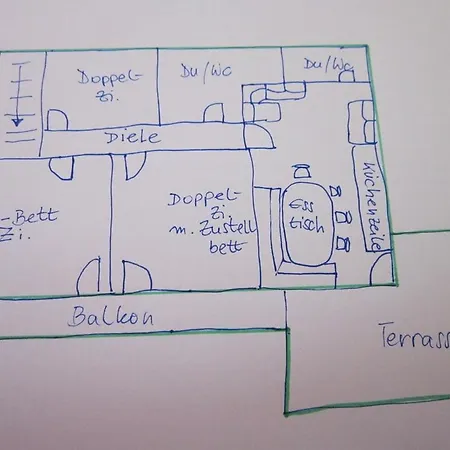 Doppel-
zi.
Du/WC
Du/WC
Diele
-Bett
Zi.
Doppel-
zi.
m. Zustell
bett
Ess
tisch
Küchenzeile
Balkon
Terrass